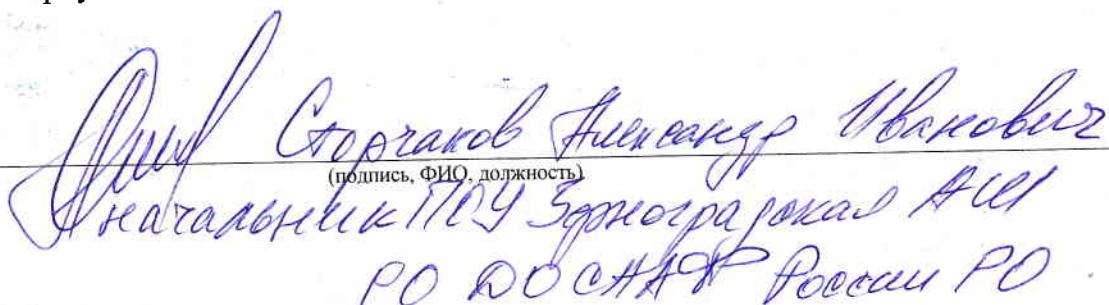 Сторчаков Александр Иванович
(подпись, ФИО, должность)
начальник ПОУ Зерноградская АШ
РО ДОСААФ России РО